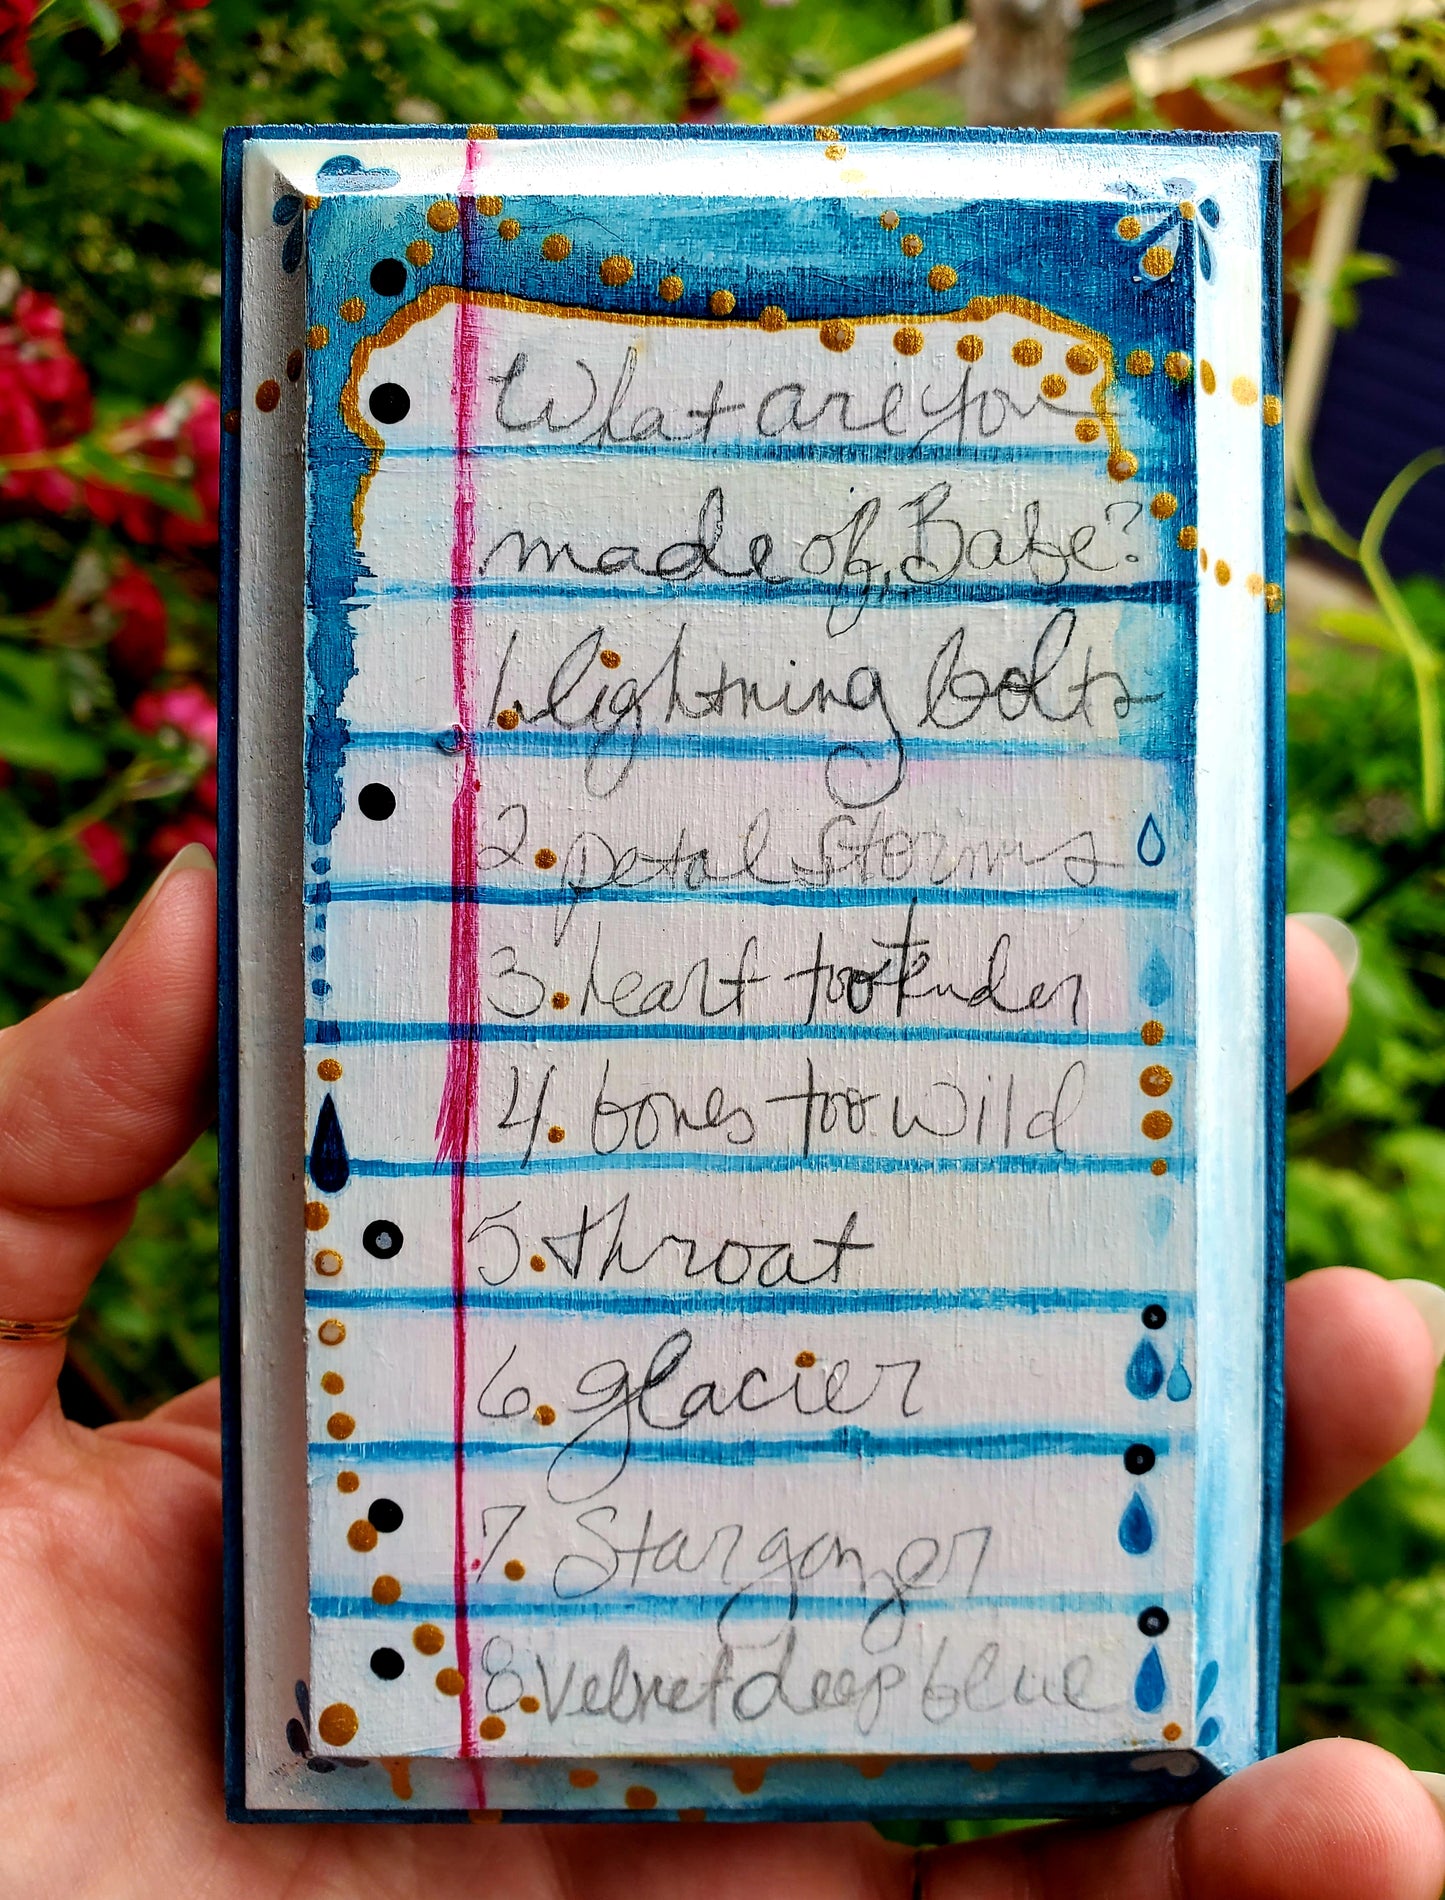 What are you
made of, Babe?
1. lightning bolts
2. petal storms
3. heart too tender
4. bones too wild
5. throat
6. glacier
7. Stargazer
8. Velvet deep blue